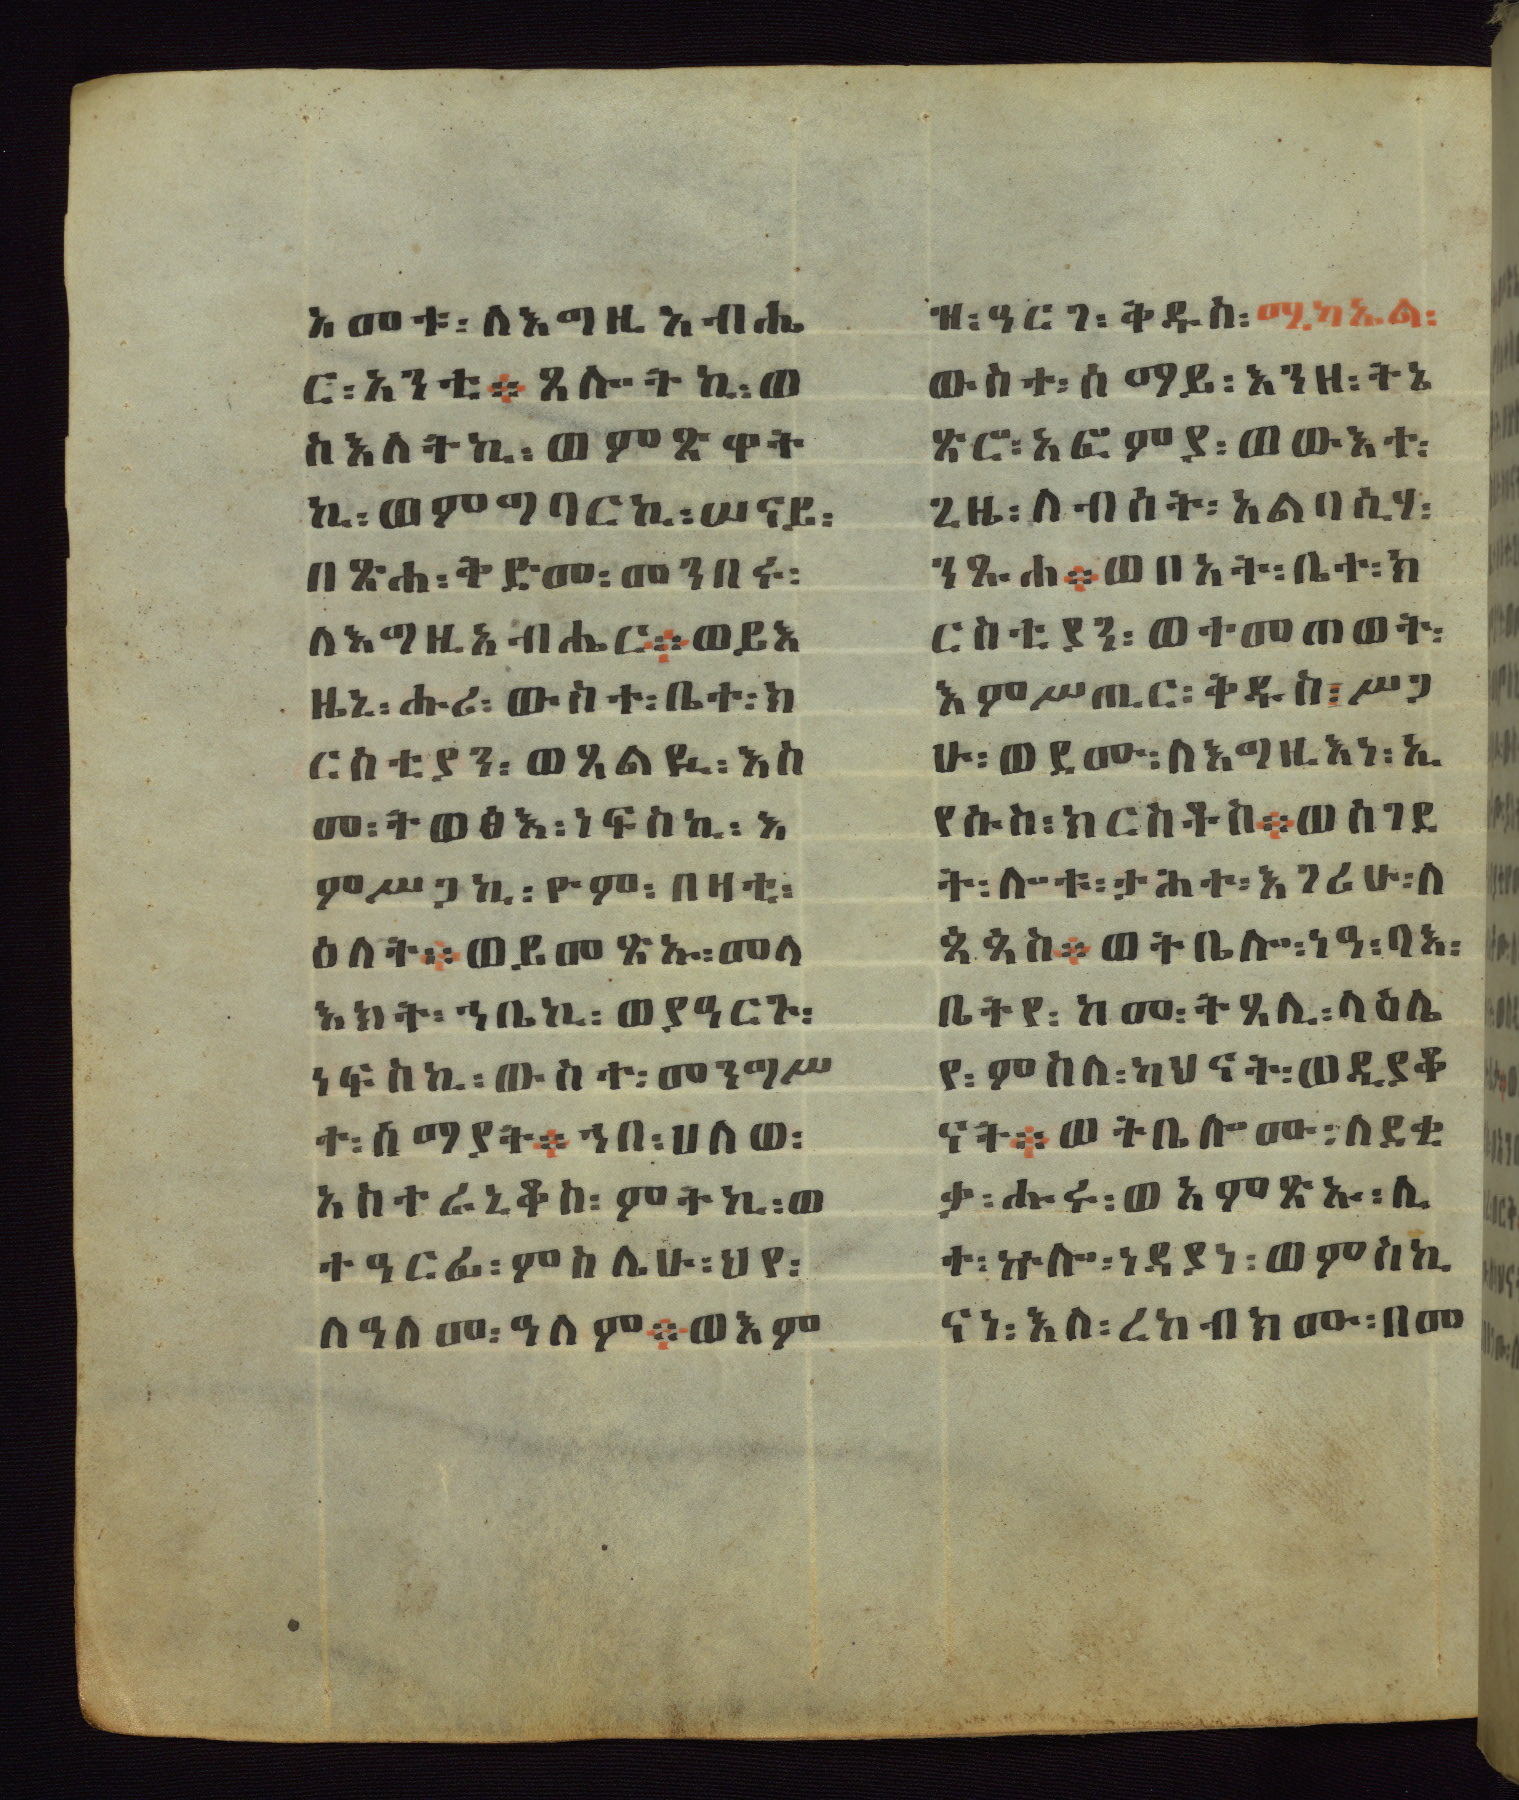 አመቱ፡ለእግዚአብሔ
ር፡አንቲ፨ጸሎትኪ፡ወ
ስእለትኪ፡ወምጽዋት
ኪ፡ወምግባርኪ፡ሠናይ፡
በጽሐ፡ቅድመ፡መንበሩ፡
ለእግዚአብሔር፨ወይእ
ዜኒ፡ሑሪ፡ውስተ፡ቤተ፡ክ
ርስቲያን፡ወጸልዪ፡እስ
መ፡ትወፅእ፡ነፍስኪ፡እ
ምሥጋኪ፡ዮም፡በዛቲ፡
ዕለት፨ወይመጽኡ፡መላ
እክት፡ኀቤኪ፡ወያዓርጉ፡
ነፍስኪ፡ውስተ፡መንግሥ
ተ፡ሰማያት፨ኀበ፡ሀለወ፡
አስተራኒቆስ፡ምትኪ፡ወ
ተዓርፊ፡ምስሌሁ፡ህየ፡
ለዓለመ፡ዓለም፨ወእም
ዝ፡ዓርገ፡ቅዱስ፡ሚካኤል፡
ውስተ፡ሰማይ፡እንዘ፡ትኔ
ጽሮ፡አፎምያ፡ወውእተ፡
ጊዜ፡ለብሰት፡አልባሲሃ፡
ንጹሐ፨ወቦአት፡ቤተ፡ክ
ርስቲያን፡ወተመጠወት፡
እምሥጢር፡ቅዱስ፡ሥጋ
ሁ፡ወደሙ፡ለእግዚእነ፡ኢ
የሱስ፡ክርስቶስ፨ወሰገደ
ት፡ሎቱ፡ታሕተ፡እገሪሁ፡ለ
ጳጳስ፨ወትቤሎ፡ነዓ፡ባእ፡
ቤትየ፡ከመ፡ትጸሊ፡ላዕሌ
የ፡ምስለ፡ካህናት፡ወዲያቆ
ናት፨ወትቤሎሙ፡ለደቂ
ቃ፡ሑሩ፡ወአምጽኡ፡ሊ
ተ፡ኵሎ፡ነዳያነ፡ወምስኪ
ናነ፡እለ፡ረከብክሙ፡በመ